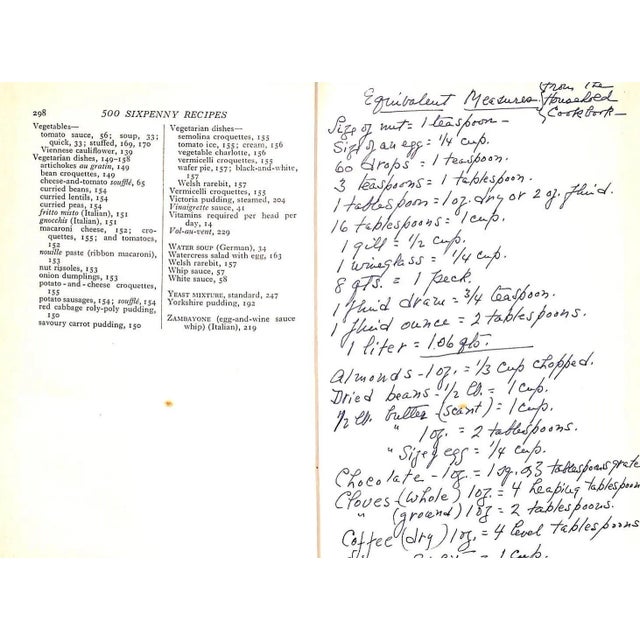 298 500 SIXPENNY RECIPES
Vegetables—
tomato sauce, 56; soup, 33;
quick, 33; stuffed, 169, 170
Viennese cauliflower, 139
Vegetarian dishes, 149-158
artichokes au gratin, 149
bean croquettes, 149
cheese-and-tomato soufflé, 65
curried beans, 154
curried lentils, 154
curried peas, 154
fritto mitto (Italian), 151
gnocchis (Italian), 151
macaroni cheese, 152; cro-
quettes, 155; and tomatoes,
152
nouille paste (ribbon macaroni),
153
nut rissoles, 153
onion dumplings, 153
potato-and-cheese croquettes,
155
potato sausages, 154; soufflé, 154
red cabbage roly-poly pudding,
150
savoury carrot pudding, 150
Vegetarian dishes—
semolina croquettes, 155
tomato ice, 155; cream, 156
vegetable charlotte, 156
vermicelli croquettes, 155
wafer pie, 157; black-and-white,
157
Welsh rarebit, 157
Vermicelli croquettes, 155
Victoria pudding, steamed, 204
Vinaigrette sauce, 41
Vitamins required per head per
day, 14
Vol-au-vent, 229
WATER SOUP (German), 34
Watercress salad with egg, 163
Welsh rarebit, 157
Whip sauce, 57
White sauce, 58
YEAST MIXTURE, standard, 247
Yorkshire pudding, 192
ZAMBAYONE (egg-and-wine sauce
whip) (Italian), 219
Equivalent Measures. from the
Household
Cookbook—
Size of nut = 1 teaspoon—
Size of an egg = 1/4 cup.
60 drops = 1 teaspoon.
3 teaspoons = 1 tablespoon.
1 tablespoon = 1 oz. dry or 2 oz. fluid.
16 tablespoons = 1 cup.
1 gill = 1/2 cup.
1 wineglass = 1/4 cup.
8 qts. = 1 peck.
1 fluid dram = 3/4 teaspoon.
1 fluid ounce = 2 tablespoons.
1 liter = 1.06 qts.
Almonds - 1 oz. = 1/3 cup chopped.
Dried beans - 1/2 lb. = 1 cup.
1/2 lb. butter (scant) = 1 cup.
" 1 oz. = 2 tablespoons.
" Size egg = 1/4 cup.
Chocolate - 1 oz. = 1 sq. or 3 tablespoons grate
Cloves (whole) 1 oz. = 4 heaping tablespoon
" (ground) 1 oz. = 2 tablespoons.
Coffee (dry) 1 oz. = 4 level tablespoons
= 1 cup.